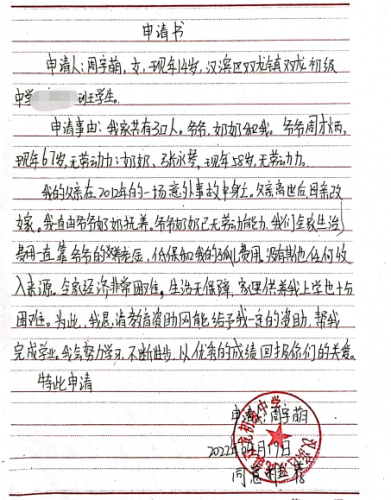 申请书
申请人:周宇萌,女,现年14岁,汉滨区双龙镇双龙初级
中学 班学生。
申请事由:我家共有3口人。爷爷、奶奶和我。爷爷周才炳,
现年67岁,无劳动力;奶奶、张永琴,现年58岁,无劳动力。
我的父亲在2012年的一场意外事故中身亡。父亲离世后,母亲改
嫁。我直由爷爷奶奶抚养。爷爷奶奶已无劳动能力,我们全家生活
费用一直靠爷爷的 ,低保和我的孤儿费用。没有其他任何收
入来源。全家经济非常困难,生活无保障,家里供养我上学也十分
困难。为此,我恳请教育资助网能给予我一定的资助,帮我
完成学业。我会努力学习,不断进步,以优秀的成绩回报你们的关爱。
特此申请
申请人:周宇萌
2022年 月17日
同意